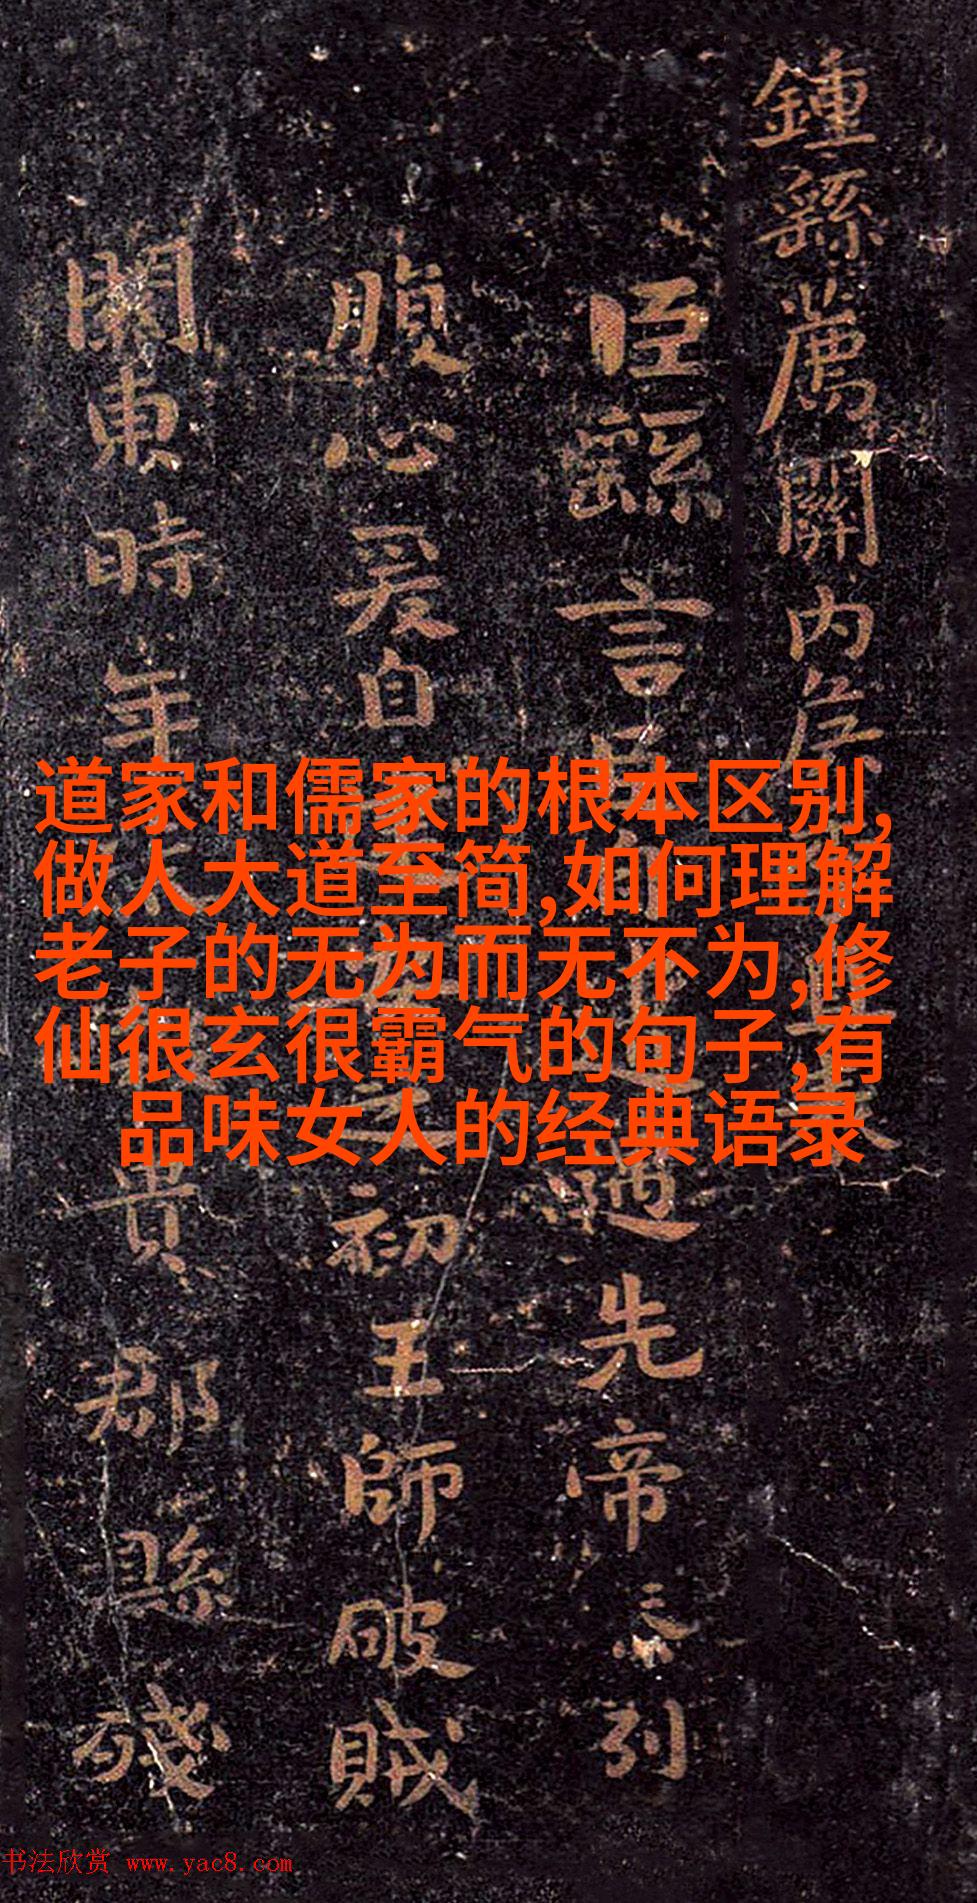 鍾繇薦關内侯
臣繇言
先帝忝列
腹心爰自
初王師破賊
關東時年
貴郡縣殘
道家和儒家的根本区别,
做人大道至简,如何理解
老子的无为而无不为,修
仙很玄很霸气的句子,有
品味女人的经典语录
书法欣赏 www.yac8.com